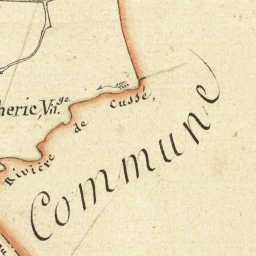 herie, Vil.ge
Rivière de Cussé.
Commune